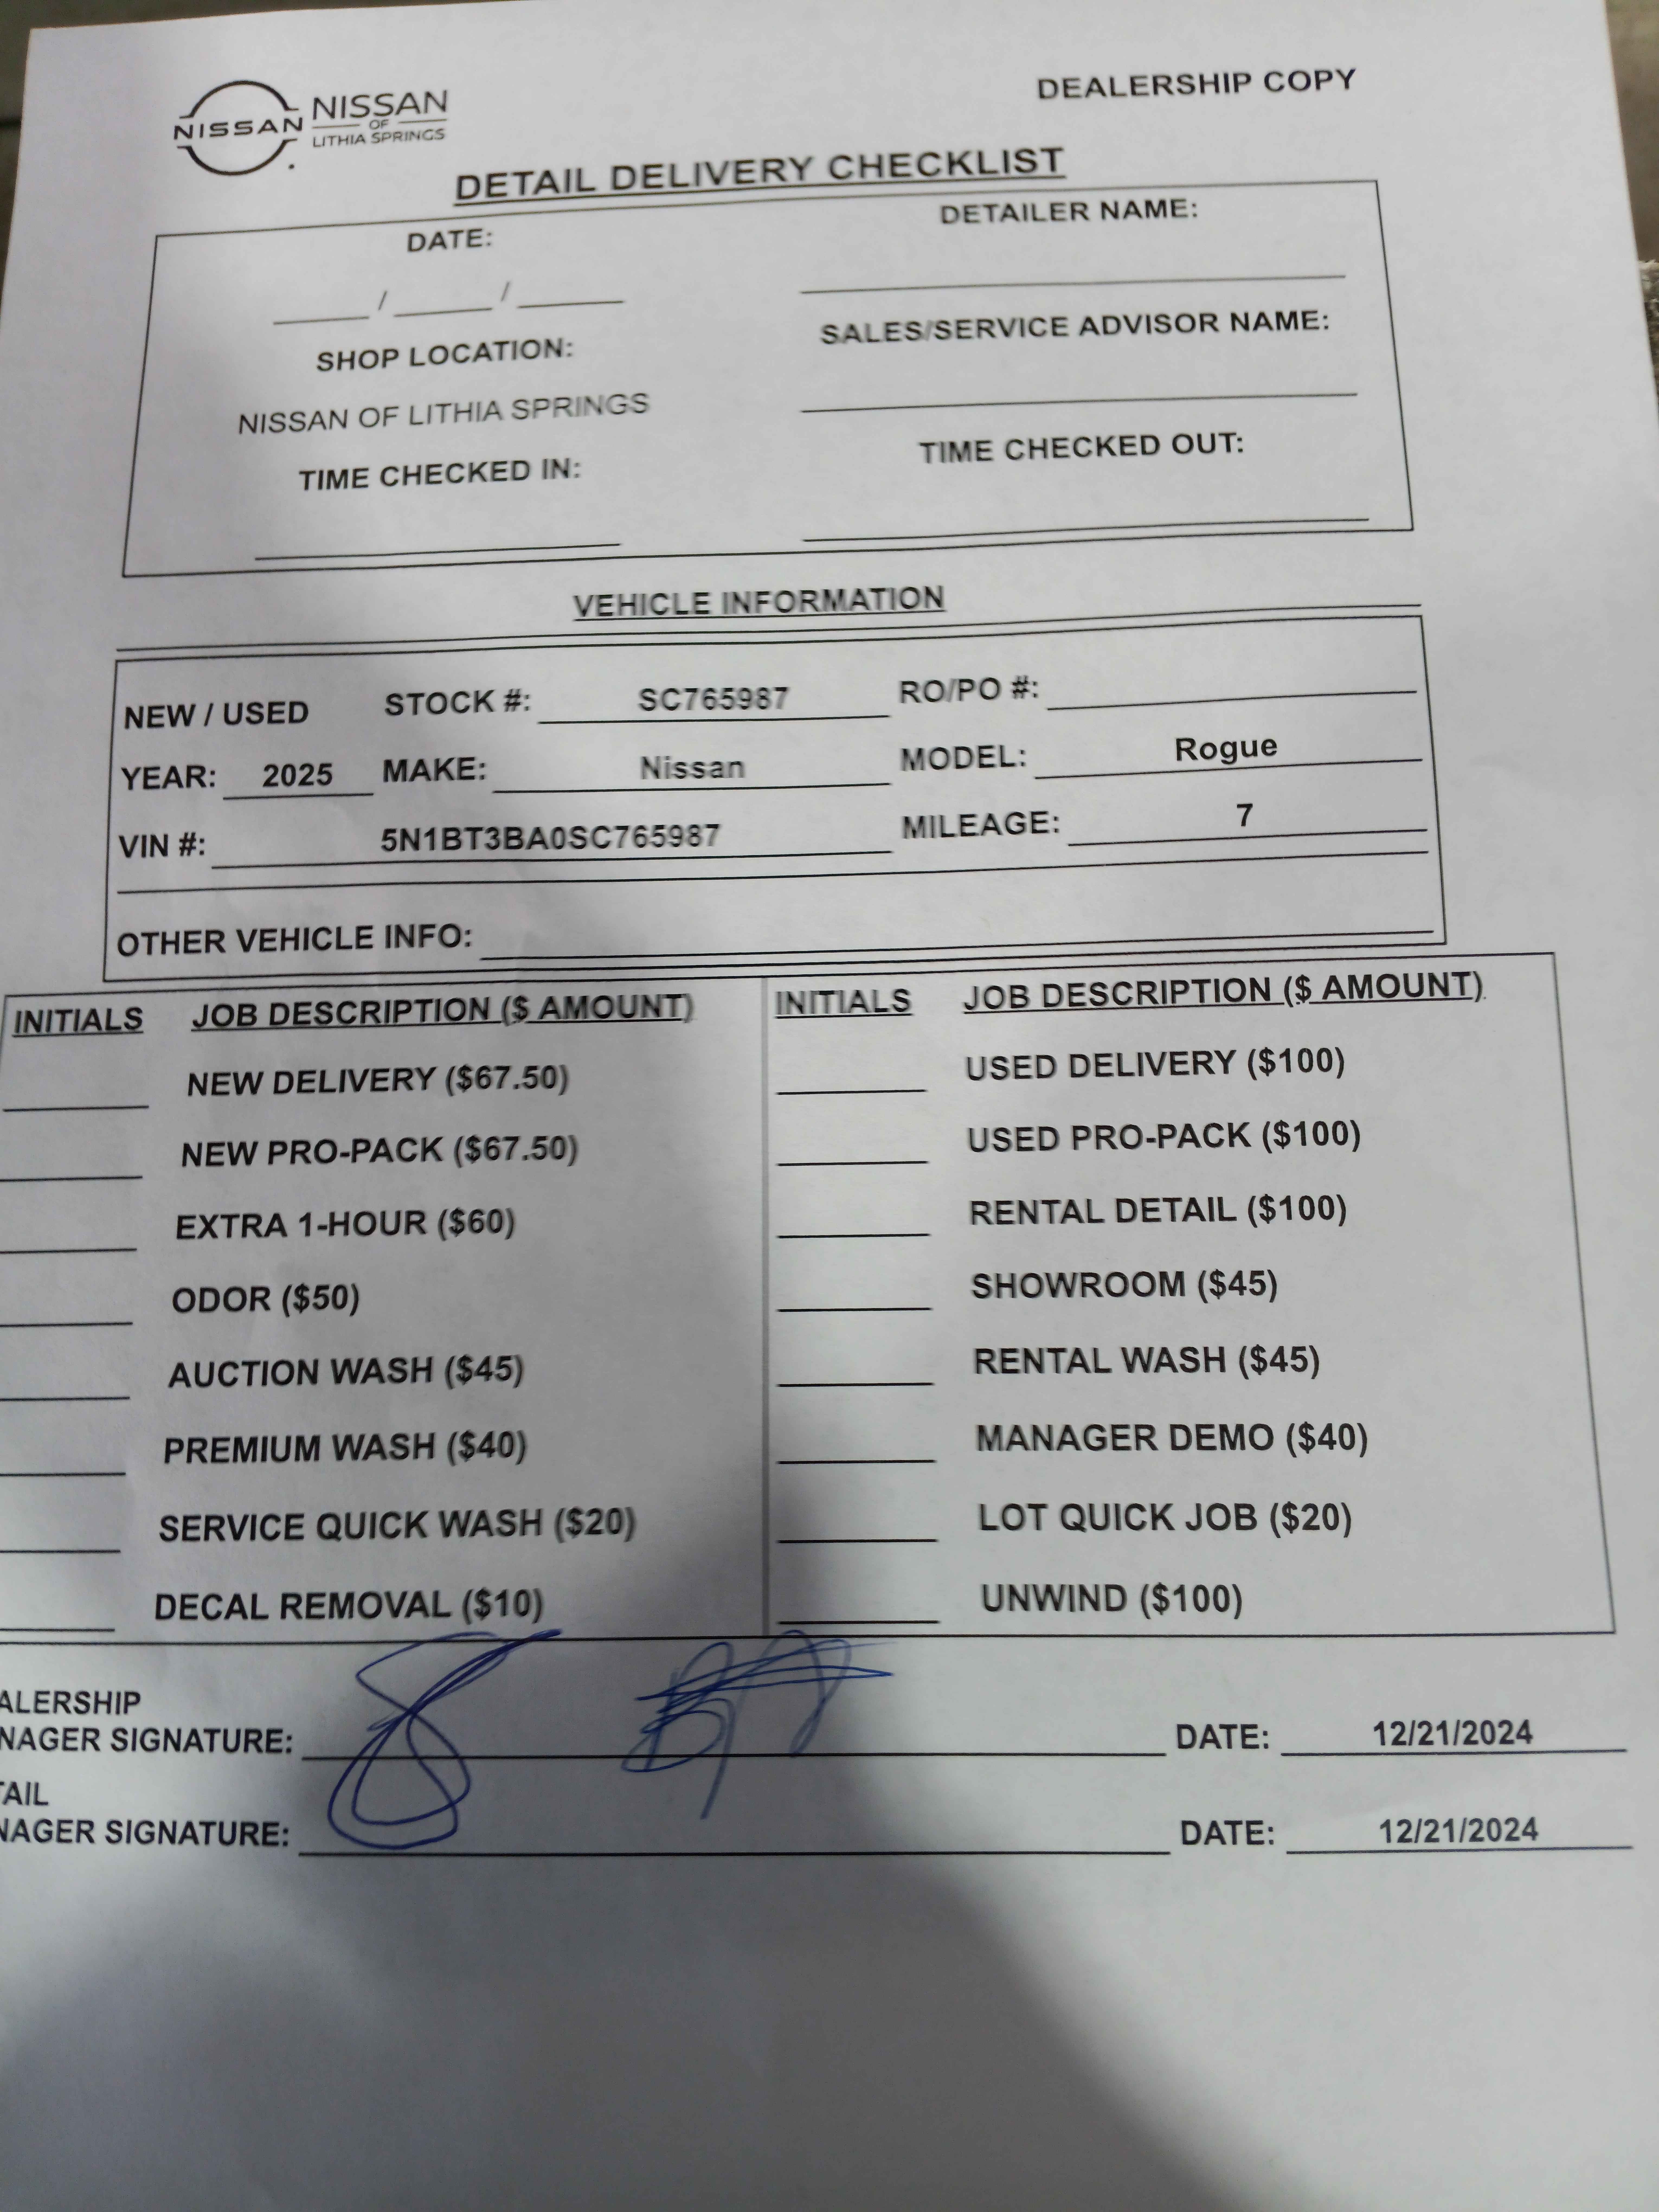 DEALERSHIP COPY
NISSAN
NISSAN
OF
LITHIA SPRINGS
DETAIL DELIVERY CHECKLIST
DATE: DETAILER NAME:
____ / ____ / ____
SHOP LOCATION: SALES/SERVICE ADVISOR NAME:
NISSAN OF LITHIA SPRINGS
TIME CHECKED IN: TIME CHECKED OUT:
VEHICLE INFORMATION
NEW / USED STOCK #: SC765987 RO/PO #:
YEAR: 2025 MAKE: Nissan MODEL: Rogue
VIN #: 5N1BT3BA0SC765987 MILEAGE: 7
OTHER VEHICLE INFO:
INITIALS JOB DESCRIPTION ($ AMOUNT) INITIALS JOB DESCRIPTION ($ AMOUNT)
NEW DELIVERY ($67.50) USED DELIVERY ($100)
NEW PRO-PACK ($67.50) USED PRO-PACK ($100)
EXTRA 1-HOUR ($60) RENTAL DETAIL ($100)
ODOR ($50) SHOWROOM ($45)
AUCTION WASH ($45) RENTAL WASH ($45)
PREMIUM WASH ($40) MANAGER DEMO ($40)
SERVICE QUICK WASH ($20) LOT QUICK JOB ($20)
DECAL REMOVAL ($10) UNWIND ($100)
ALERSHIP
NAGER SIGNATURE: DATE: 12/21/2024
TAIL
NAGER SIGNATURE: DATE: 12/21/2024